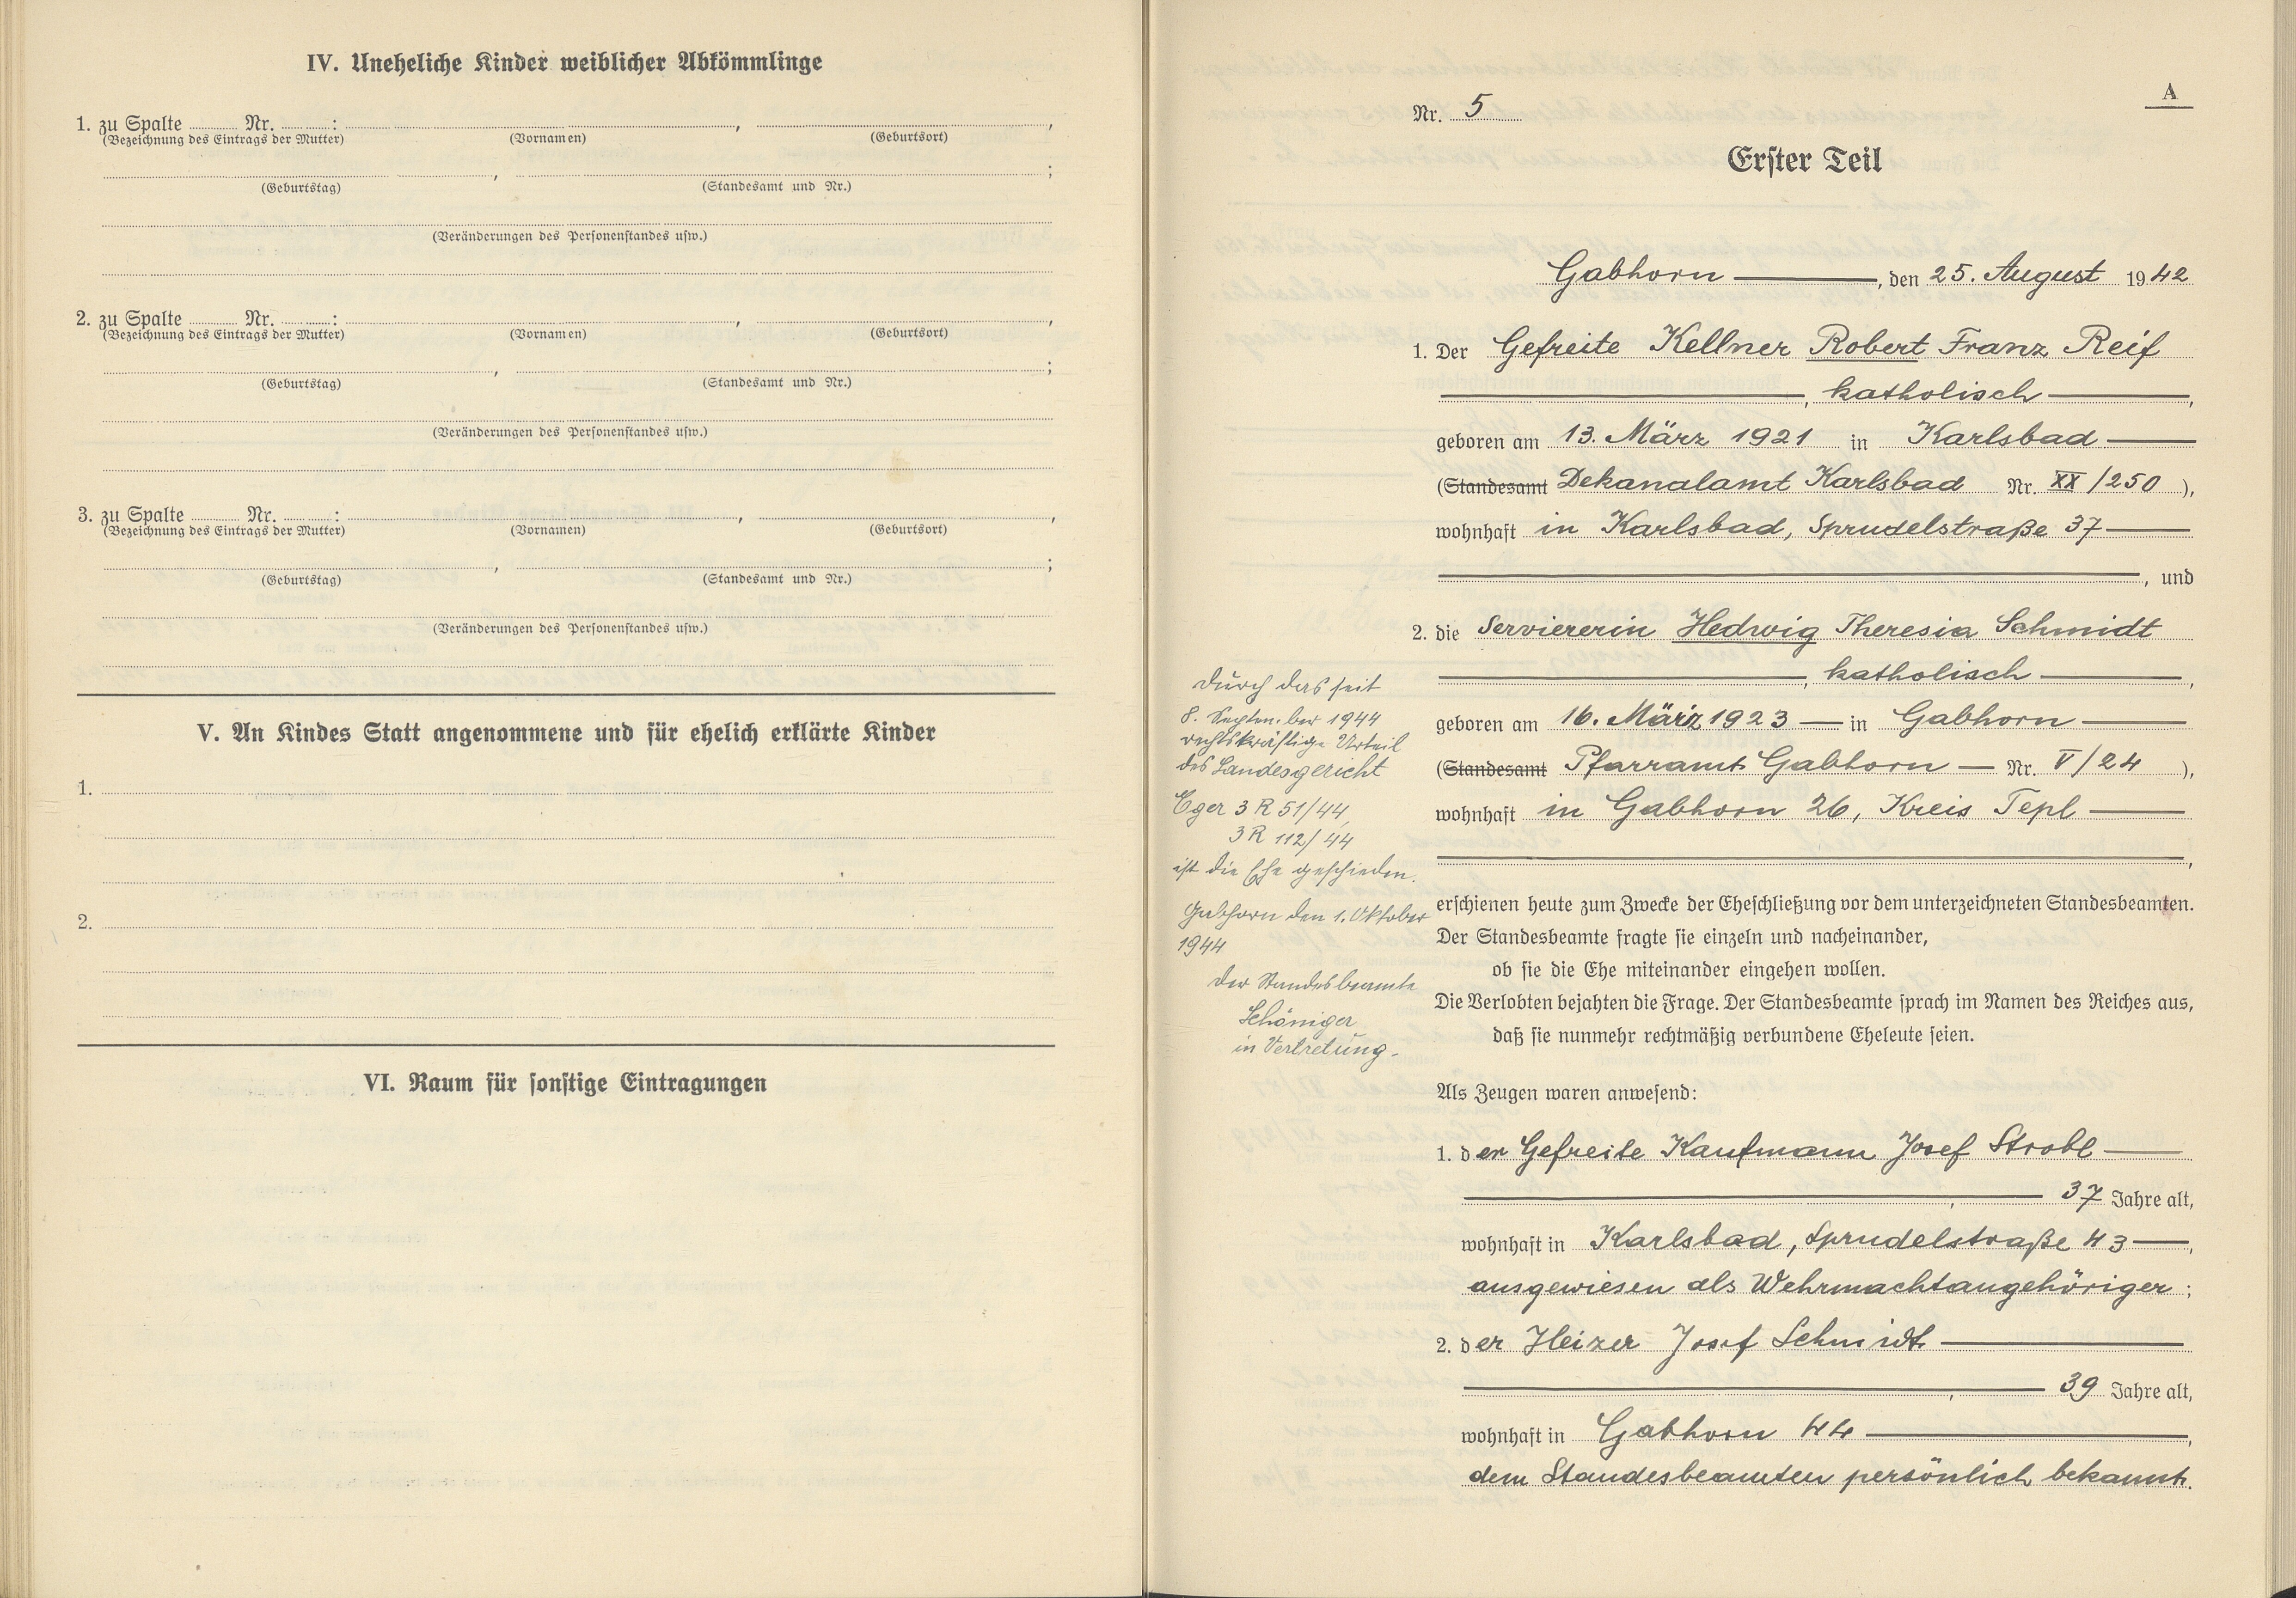 IV. Uneheliche Kinder weiblicher Abkömmlinge
1. zu Spalte ........ Nr. ........:
(Bezeichnung des Eintrags der Mutter) (Vornamen) (Geburtsort)
(Geburtstag) (Standesamt und Nr.)
(Veränderungen des Personenstandes usw.)
2. zu Spalte ........ Nr. ........:
(Bezeichnung des Eintrags der Mutter) (Vornamen) (Geburtsort)
(Geburtstag) (Standesamt und Nr.)
(Veränderungen des Personenstandes usw.)
3. zu Spalte ........ Nr. ........:
(Bezeichnung des Eintrags der Mutter) (Vornamen) (Geburtsort)
(Geburtstag) (Standesamt und Nr.)
(Veränderungen des Personenstandes usw.)
V. An Kindes Statt angenommene und für ehelich erklärte Kinder
1.
2.
VI. Raum für sonstige Eintragungen
A
Nr. 5
Erster Teil
Gabhorn, den 25. August 1942
1. Der Gefreite Kellner Robert Franz Reif
, katholisch,
geboren am 13. März 1921 in Karlsbad
(Standesamt Dekanalamt Karlsbad Nr. XX/250),
wohnhaft in Karlsbad, Sprudelstraße 37
, und
2. die Serviererin Hedwig Theresia Schmidt
, katholisch,
geboren am 16. März 1923 in Gabhorn
(Standesamt Pfarramt Gabhorn Nr. V/24),
wohnhaft in Gabhorn 26, Kreis Tepl
,
erschienen heute zum Zwecke der Eheschließung vor dem unterzeichneten Standesbeamten.
Der Standesbeamte fragte sie einzeln und nacheinander,
ob sie die Ehe miteinander eingehen wollen.
Die Verlobten bejahten die Frage. Der Standesbeamte sprach im Namen des Reiches aus,
daß sie nunmehr rechtmäßig verbundene Eheleute seien.
Als Zeugen waren anwesend:
1. der Gefreite Kaufmann Josef Strobl
, 37 Jahre alt,
wohnhaft in Karlsbad, Sprudelstraße 43,
ausgewiesen als Wehrmachtangehöriger;
2. der Heizer Josef Schmidt
, 39 Jahre alt,
wohnhaft in Gabhorn 44,
dem Standesbeamten persönlich bekannt.
Durch das seit
8. September 1944
rechtskräftige Urteil
des Landesgericht
Eger 3 R 51/44,
3 R 112/44
ist die Ehe geschieden.
Gabhorn den 1. Oktober
1944
Der Standesbeamte
Schöniger
in Vertretung.